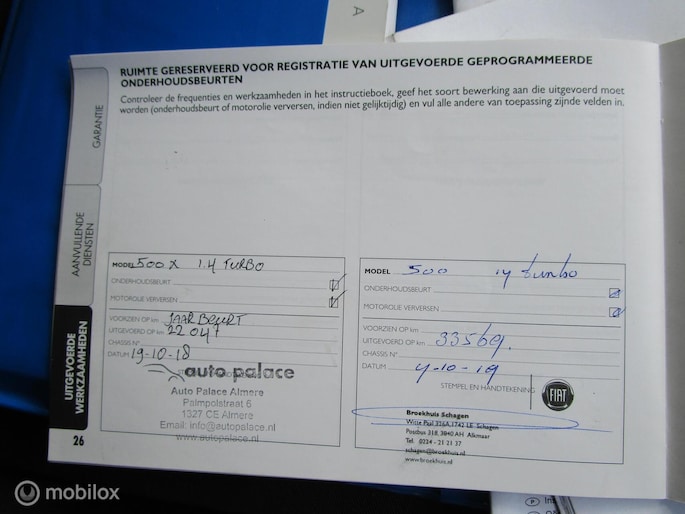 A
RUIMTE GERESERVEERD VOOR REGISTRATIE VAN UITGEVOERDE GEPROGRAMMEERDE
ONDERHOUDSBEURTEN
Controleer de frequenties en werkzaamheden in het instructieboek, geef het soort bewerking aan die uitgevoerd moet
worden (onderhoudsbeurt of motorolie verversen, indien niet gelijktijdig) en vul alle andere van toepassing zijnde velden in.
GARANTIE
AANVULLENDE
DIENSTEN
UITGEVOERDE
WERKZAAMHEDEN
26
MODEL 500X 1.4 TURBO
ONDERHOUDSBEURT
MOTOROLIE VERVERSEN
VOORZIEN OP km JAARBEURT
UITGEVOERD OP km 22047
CHASSIS N°
DATUM 19-10-18
auto palace
Auto Palace Almere
Palmpolstraat 6
1327 CE Almere
Email: info@autopalace.nl
www.autopalace.nl
MODEL 500 1.4 turbo
ONDERHOUDSBEURT
MOTOROLIE VERVERSEN
VOORZIEN OP km
UITGEVOERD OP km 33569.
CHASSIS N°
DATUM 4-10-19
STEMPEL EN HANDTEKENING
FIAT
Broekhuis Schagen
Witte Paal 326A, 1742 LE Schagen
Postbus 318, 3840 AH Alkmaar
Tel. 0224 - 21 21 37
schagen@broekhuis.nl
www.broekhuis.nl
mobilox